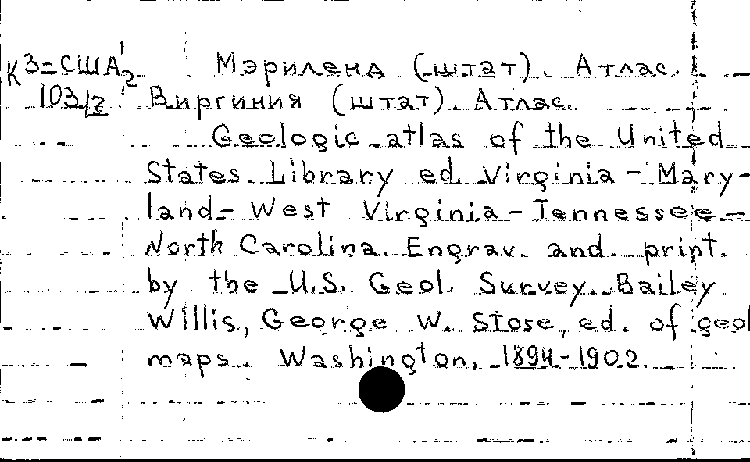 К 3=США 2 Мэриленд (штат). Атлас.
103/2 Виргиния (штат). Атлас.
Geologic atlas of the United
States. Library ed. Virginia - Mary-
land - West Virginia - Tennessee -
North Carolina. Engrav. and print.
by the U.S. Geol. Survey. Bailey
Willis, George W. Stose, ed. of geol
maps. Washington, 1894-1902.